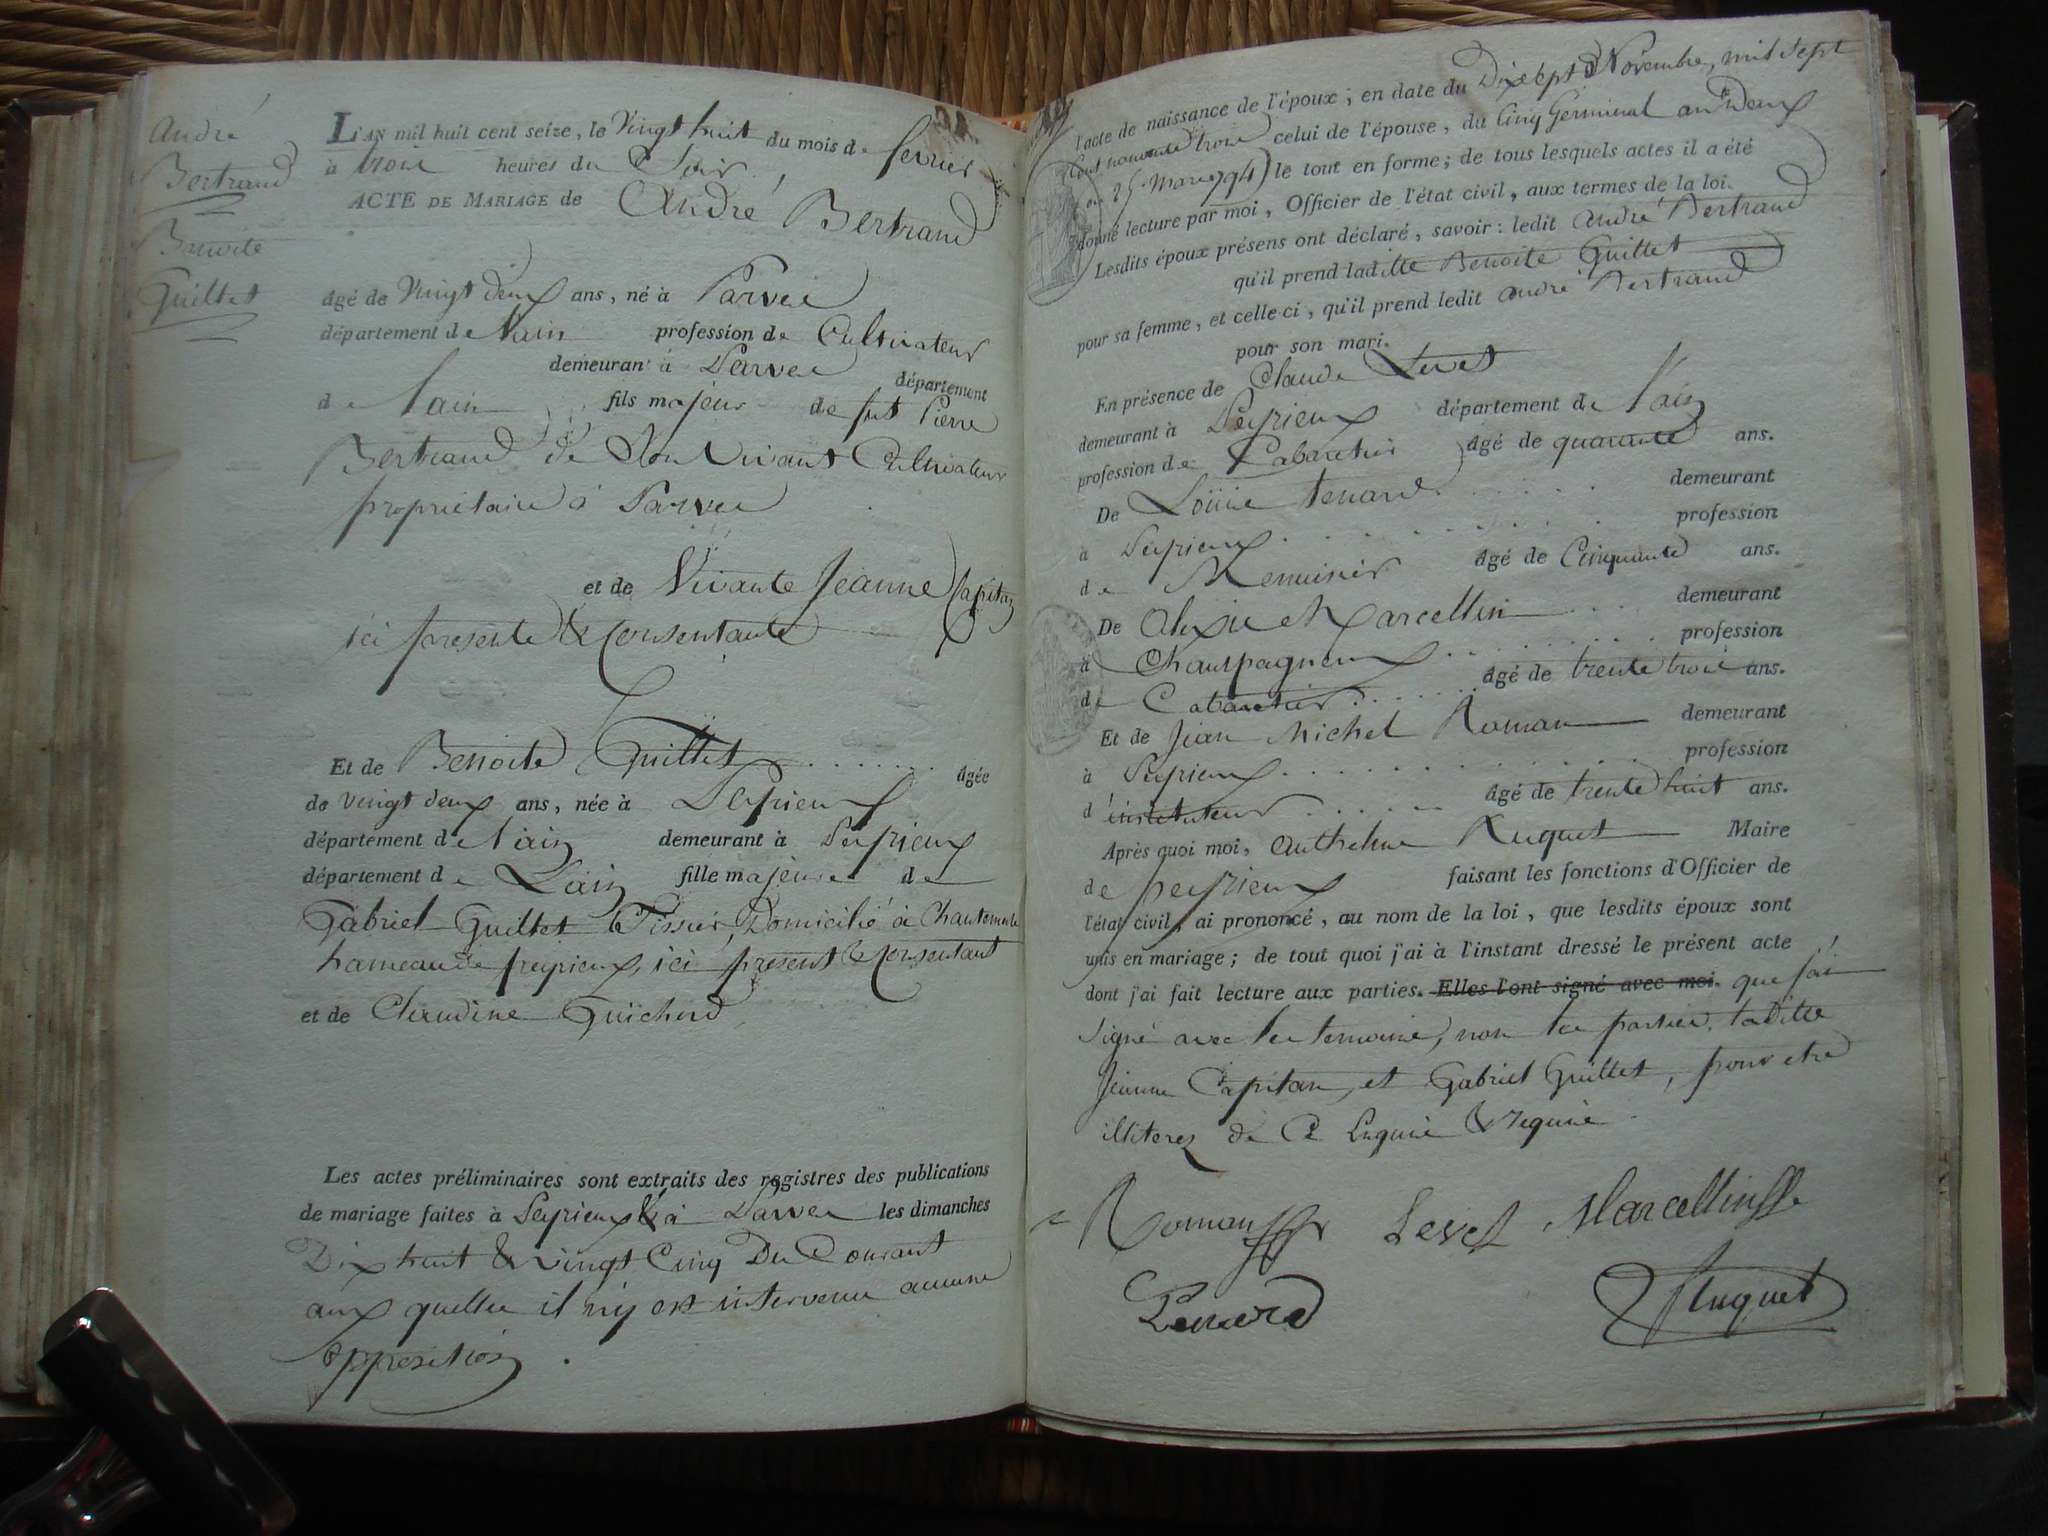 André
Bertrand
Benoite
Guillet
L'AN mil huit cent seize, le Vingt huit du mois de fevrier
à trois heures du Soir,
ACTE DE MARIAGE de André Bertrand
âgé de Vingt deux ans, né à Parves
département de l'ain profession de Cultivateur
demeurant à Parves département
de l'ain fils majeur de fut Pierre
Bertrand de Son Vivant Cultivateur
propriétaire à Parves
et de Vivante Jeanne Capitan
ici presente & Consentante
Et de Benoite Guillet âgée
de vingt deux ans, née à Peyrieux
département de l'ain demeurant à Peyrieux
département de L'ain fille majeure de
Gabriel Guillet Tissier, Domicilié à Chantemerle
hameau de peyrieux, ici present & Consentant
et de Claudine Guichard
Les actes préliminaires sont extraits des registres des publications
de mariage faites à Peyrieux & à Parves les dimanches
Dix huit & vingt Cinq Du Courant
aux quelles il n'y est intervenu aucune
opposition.
l'acte de naissance de l'époux; en date du Dix sept Novembre, mil sept
Cent nonante trois celui de l'épouse, du Cinq Germinal an Deux
(ou 25 Mars 1794) le tout en forme; de tous lesquels actes il a été
donné lecture par moi, Officier de l'état civil, aux termes de la loi.
Lesdits époux présens ont déclaré, savoir: ledit André Bertrand
qu'il prend laditte Benoite Guillet
pour sa femme, et celle-ci, qu'il prend ledit André Bertrand
pour son mari.
En présence de Claude Levet
demeurant à Peyrieux département de l'ain
profession de Cabaretier âgé de quarante ans.
De Louis tenard demeurant
à Peyrieux profession
de Menuisier âgé de Cinquante ans.
De Alexis Marcellin demeurant
à Champagneux profession
de Cabaretier âgé de trente trois ans.
Et de Jean Michel Roman demeurant
à Peyrieux profession
d'instituteur âgé de trente huit ans.
Après quoi moi, Anthelme Ruquet Maire
de peyrieux faisant les fonctions d'Officier de
l'état civil, ai prononcé, au nom de la loi, que lesdits époux sont
unis en mariage; de tout quoi j'ai à l'instant dressé le présent acte
dont j'ai fait lecture aux parties. Elles l'ont signé avec moi. que j'ai
signé avec les temoins, non les parties, laditte
Jeanne Capitan, et Gabriel Guillet, pour etre
illiterez de Ce Enquis & requis
Roman Levet Marcellin
Tenard Ruquet